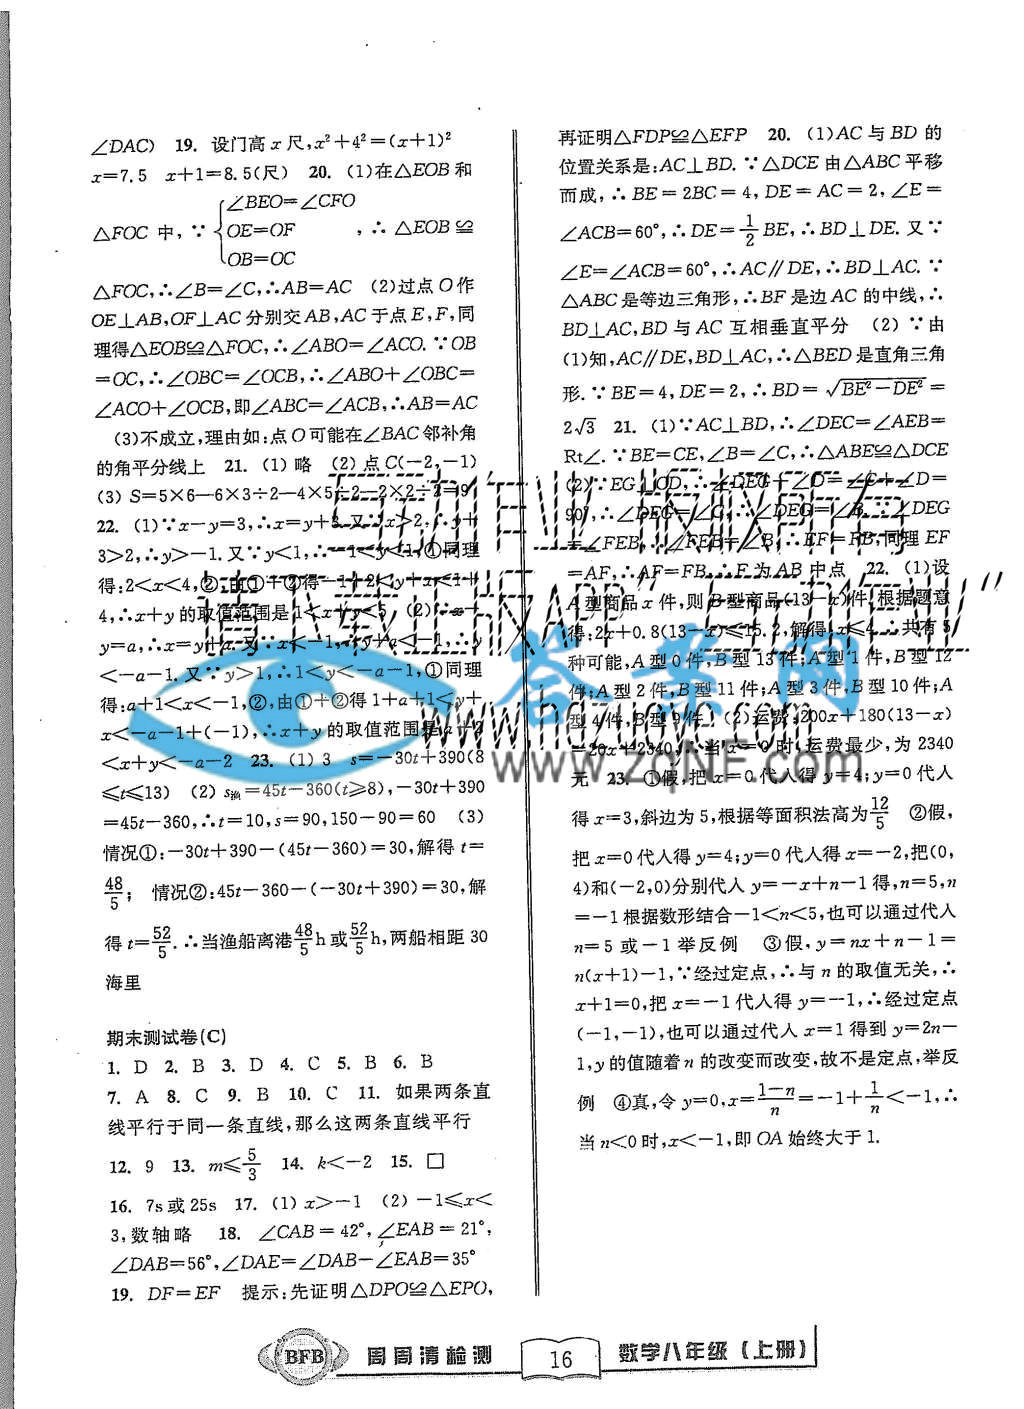 ∠DAC) 19. 设门高 x 尺,x²+4²=(x+1)²
x=7.5 x+1=8.5(尺) 20. (1)在△EOB和
△FOC 中,∵ {∠BEO=∠CFO
OE=OF
OB=OC ,∴△EOB≌
△FOC,∴∠B=∠C,∴AB=AC (2)过点 O 作
OE⊥AB,OF⊥AC 分别交 AB,AC 于点 E,F,同
理得△EOB≌△FOC,∴∠ABO=∠ACO.∵OB
=OC,∴∠OBC=∠OCB,∴∠ABO+∠OBC=
∠ACO+∠OCB,即∠ABC=∠ACB,∴AB=AC
(3)不成立,理由如:点 O 可能在∠BAC 邻补角
的角平分线上 21. (1)略 (2)点 C(-2,-1)
(3) S=5×6-6×3÷2-4×5÷2-2×2÷2=9
22. (1)∵x-y=3,∴x=y+3.又∵x>2,∴y+
3>2,∴y>-1.又∵y<1,∴-1<y<1,①同理
得:2<x<4,②,由①+②得-1+2<y+x<1+
4,∴x+y 的取值范围是 1<x+y<5 (2)∵x+
y=a,∴x=y+a.又∵x<-1,∴y+a<-1,∴y
<-a-1.又∵y>1,∴1<y<-a-1,①同理
得:a+1<x<-1,②,由①+②得 1+a+1<y+
x<-a-1+(-1),∴x+y 的取值范围是 a+2
<x+y<-a-2 23. (1) 3 s=-30t+390(8
≤t≤13) (2) s渔=45t-360(t≥8),-30t+390
=45t-360,∴t=10,s=90,150-90=60 (3)
情况①:-30t+390-(45t-360)=30,解得 t=
48/5; 情况②:45t-360-(-30t+390)=30,解
得 t=52/5.∴当渔船离港48/5h 或52/5h,两船相距 30
海里
期末测试卷(C)
1. D 2. B 3. D 4. C 5. B 6. B
7. A 8. C 9. B 10. C 11. 如果两条直
线平行于同一条直线,那么这两条直线平行
12. 9 13. m≤5/3 14. k<-2 15. □
16. 7s 或 25s 17. (1) x>-1 (2) -1≤x<
3,数轴略 18. ∠CAB=42°,∠EAB=21°,
∠DAB=56°,∠DAE=∠DAB-∠EAB=35°
19. DF=EF 提示:先证明△DPO≌△EPO,
再证明△FDP≌△EFP 20. (1)AC 与 BD 的
位置关系是:AC⊥BD.∵△DCE 由△ABC 平移
而成,∴BE=2BC=4,DE=AC=2,∠E=
∠ACB=60°,∴DE=1/2BE,∴BD⊥DE.又∵
∠E=∠ACB=60°,∴AC∥DE,∴BD⊥AC.∵
△ABC 是等边三角形,∴BF 是边 AC 的中线,∴
BD⊥AC,BD 与 AC 互相垂直平分 (2)∵由
(1)知,AC∥DE,BD⊥AC,∴△BED 是直角三角
形.∵BE=4,DE=2,∴BD=√BE²-DE²=
2√3 21. (1)∵AC⊥BD,∴∠DEC=∠AEB=
Rt∠.∵BE=CE,∠B=∠C,∴△ABE≌△DCE
(2)∵EG⊥CD,∴∠DEG+∠D=∠C+∠D=
90°,∴∠DEG=∠C,∴∠DEG=∠B.∵∠DEG
=∠FEB,∴∠FEB=∠B,∴EF=FB,同理 EF
=AF,∴AF=FB,∴F 为 AB 中点 22. (1)设
A 型商品 x 件,则 B 型商品(13-x)件,根据题意
得:2x+0.8(13-x)≤15.2,解得:x≤4,∴共有 5
种可能,A 型 0 件,B 型 13 件;A 型 1 件,B 型 12
件;A 型 2 件,B 型 11 件;A 型 3 件,B 型 10 件;A
型 4 件,B 型 9 件 (2)运费:200x+180(13-x)
=20x+2340,∴当 x=0 时,运费最少,为 2340
元 23. ①假,把 x=0 代人得 y=4;y=0 代人
得 x=3,斜边为 5,根据等面积法高为12/5 ②假,
把 x=0 代人得 y=4;y=0 代人得 x=-2,把(0,
4)和(-2,0)分别代人 y=-x+n-1 得,n=5,n
=-1 根据数形结合-1<n<5,也可以通过代人
n=5 或-1 举反例 ③假,y=nx+n-1=
n(x+1)-1,∵经过定点,∴与 n 的取值无关,∴
x+1=0,把 x=-1 代人得 y=-1,∴经过定点
(-1,-1),也可以通过代人 x=1 得到 y=2n-
1,y 的值随着 n 的改变而改变,故不是定点,举反
例 ④真,令 y=0,x=1-n/n=-1+1/n<-1,∴
当 n<0 时,x<-1,即 OA 始终大于 1.
答案网
www.hdzuoye.com
www.zqnf.com
BFB 周周清检测 16 数学八年级(上册)